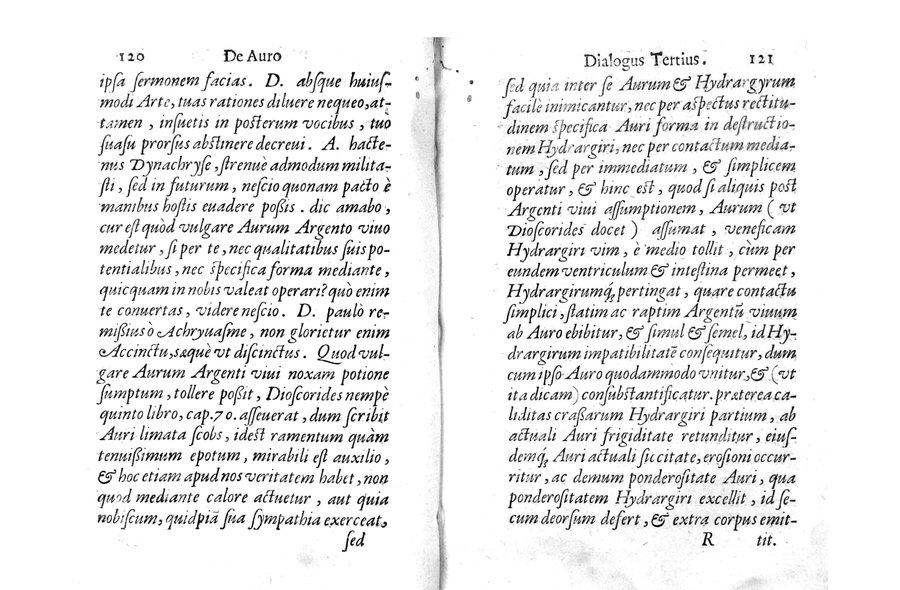 120 De Auro
ipsa sermonem facias. D. absque huius-
modi Arte, tuas rationes diluere nequeo, at-
tamen, insuetis in posterum vocibus, tuò
suasu prorsus abstinere decreui. A. hacte-
nus Dynachryse, strenuè admodum milita-
sti, sed in futurum, nescio quonam pacto è
manibus hostis euadere possis. dic amabo,
cur est quòd vulgare Aurum Argento viuo
medetur, si per te, nec qualitatibus suis po-
tentialibus, nec specifica forma mediante,
quicquam in nobis valeat operari? quò enim
te conuertas, videre nescio. D. paulò re-
missius ò Achryuasme, non glorietur enim
Accinctu, sæquè vt discinctus. Quod vul-
gare Aurum Argenti viui noxam potione
sumptum, tollere possit, Dioscorides nempè
quinto libro, cap. 70. asseuerat, dum scribit
Auri limata scobs, idest ramentum quàm
tenuissimum epotum, mirabili est auxilio,
& hoc etiam apud nos veritatem habet, non
quod mediante calore actuetur, aut quia
nobiscum, quidpiā sua sympathia exerceat,
sed
Dialogus Tertius. 121
sed quia inter se Aurum & Hydrargyrum
facilè inimicantur, nec per aspectus rectitu-
dinem specifica Auri forma in destructio-
nem Hydrargiri, nec per contactum media-
tum, sed per immediatum, & simplicem
operatur, & hinc est, quod si aliquis post
Argenti viui assumptionem, Aurum (vt
Dioscorides docet) assumat, veneficam
Hydrargiri vim, è medio tollit, cùm per
eundem ventriculum & intestina permeet,
Hydrargirumq́; pertingat, quare contactu
simplici, statim ac raptim Argentū viuum
ab Auro ebibitur, & simul & semel, id Hy-
drargirum impatibilitatē consequitur, dum
cum ipso Auro quodammodo vnitur, & (vt
ita dicam) consubstantificatur. præterea ca-
liditas crassarum Hydrargiri partium, ab
actuali Auri frigiditate retunditur, eius-
demq́; Auri actuali siccitate, erosioni occur-
ritur, ac demum ponderositate Auri, qua
ponderositatem Hydrargiri excellit, id se-
cum deorsum defert, & extra corpus emit-
R tit.